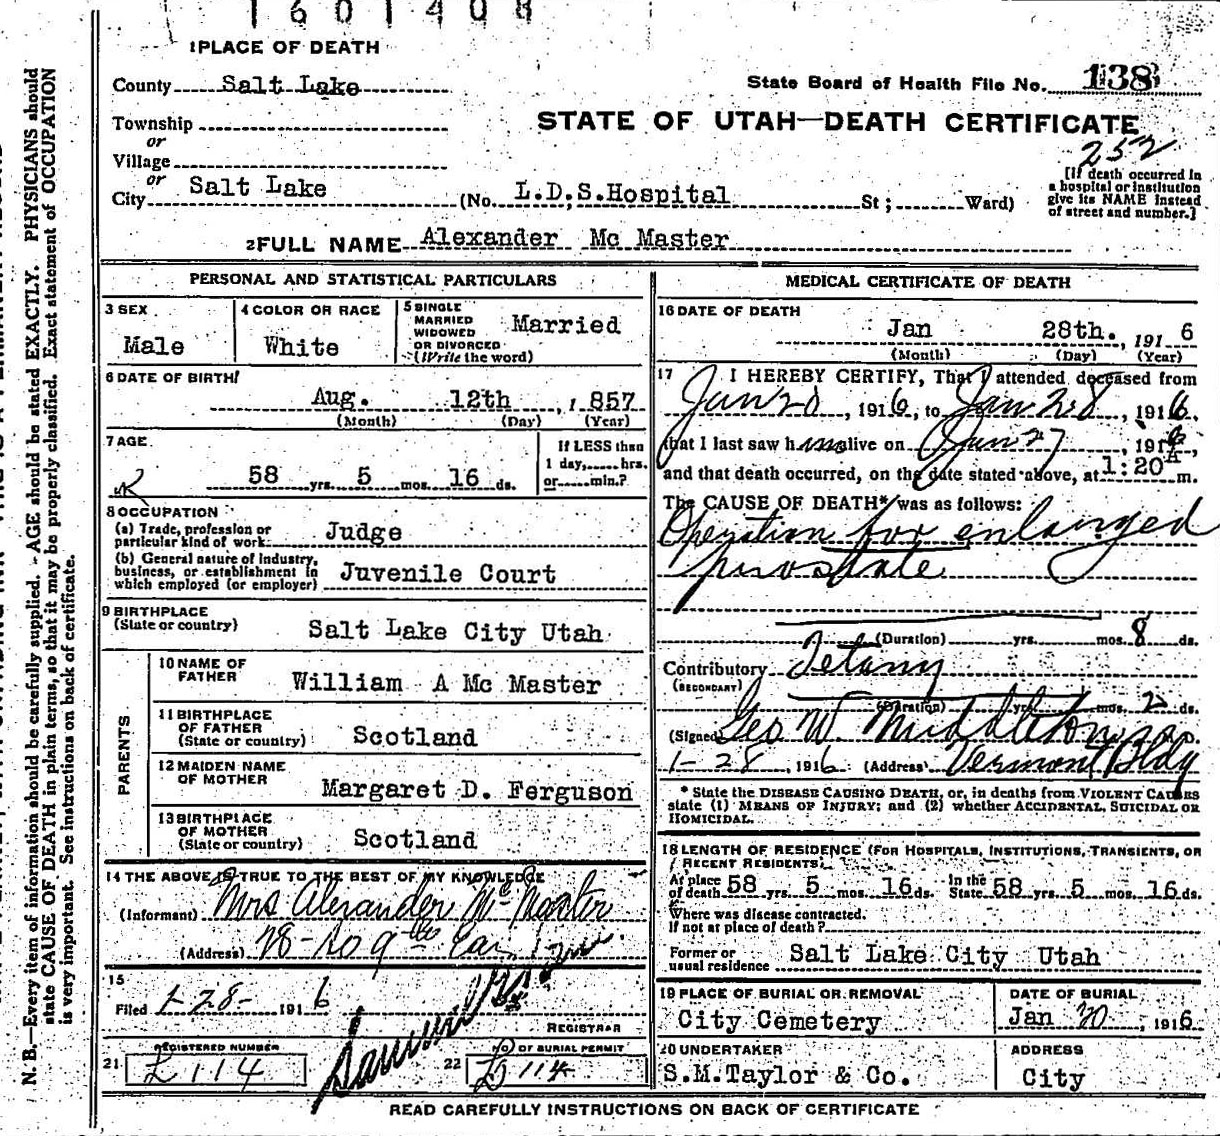 1601408
1 PLACE OF DEATH
County Salt Lake
State Board of Health File No. 138
Township
STATE OF UTAH—DEATH CERTIFICATE
or
Village
252
or
City Salt Lake (No. L.D.S. Hospital St; Ward)
[If death occurred in
a hospital or institution
give its NAME instead
of street and number.]
2 FULL NAME Alexander Mc Master
PERSONAL AND STATISTICAL PARTICULARS
3 SEX
Male
4 COLOR OR RACE
White
5 SINGLE
MARRIED
WIDOWED
OR DIVORCED
(Write the word)
Married
6 DATE OF BIRTH
Aug. 12th, 1857
(Month) (Day) (Year)
7 AGE
58 yrs. 5 mos. 16 ds.
If LESS than
1 day,......hrs.
or......min.?
8 OCCUPATION
(a) Trade, profession or
particular kind of work: Judge
(b) General nature of industry,
business, or establishment in
which employed (or employer) Juvenile Court
9 BIRTHPLACE
(State or country)
Salt Lake City Utah
PARENTS
10 NAME OF
FATHER
William A Mc Master
11 BIRTHPLACE
OF FATHER
(State or country) Scotland
12 MAIDEN NAME
OF MOTHER
Margaret D. Ferguson
13 BIRTHPLACE
OF MOTHER
(State or country) Scotland
14 THE ABOVE IS TRUE TO THE BEST OF MY KNOWLEDGE
(Informant) Mrs Alexander McMaster
(Address)
15
Filed 1-28- 1916
REGISTRAR
21 REGISTERED NUMBER
114
22 NO OF BURIAL PERMIT
114
MEDICAL CERTIFICATE OF DEATH
16 DATE OF DEATH
Jan 28th., 1916
(Month) (Day) (Year)
17 I HEREBY CERTIFY, That I attended deceased from
Jan 20, 1916, to Jan 28, 1916,
that I last saw him alive on Jan 27, 1916,
and that death occurred, on the date stated above, at 1:20 A m.
The CAUSE OF DEATH* was as follows:
Operation for enlarged
prostate
(Duration) yrs. mos. 8 ds.
Contributory Tetany
(SECONDARY)
(Duration) yrs. mos. 2 ds.
(Signed) Geo W. Middleton M.D.
1-28, 1916 (Address) Vermont Bldg
* State the DISEASE CAUSING DEATH, or, in deaths from VIOLENT CAUSES
state (1) MEANS OF INJURY; and (2) whether ACCIDENTAL, SUICIDAL OR
HOMICIDAL.
18 LENGTH OF RESIDENCE (FOR HOSPITALS, INSTITUTIONS, TRANSIENTS, OR
RECENT RESIDENTS).
At place
of death 58 yrs. 5 mos. 16 ds. In the
State 58 yrs. 5 mos. 16 ds.
Where was disease contracted.
If not at place of death?
Former or
usual residence Salt Lake City Utah
19 PLACE OF BURIAL OR REMOVAL
City Cemetery
DATE OF BURIAL
Jan 30, 1916
20 UNDERTAKER
S.M. Taylor & Co.
ADDRESS
City
READ CAREFULLY INSTRUCTIONS ON BACK OF CERTIFICATE
N. B.—Every item of information should be carefully supplied. AGE should be stated EXACTLY. PHYSICIANS should
state CAUSE OF DEATH in plain terms, so that it may be properly classified. Exact statement of OCCUPATION
is very important. See instructions on back of certificate.